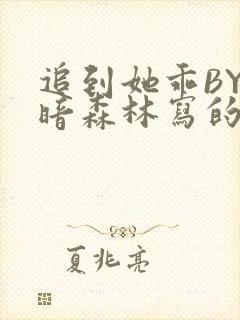 追到她乖BY
暗森林寫的
夏兆亮